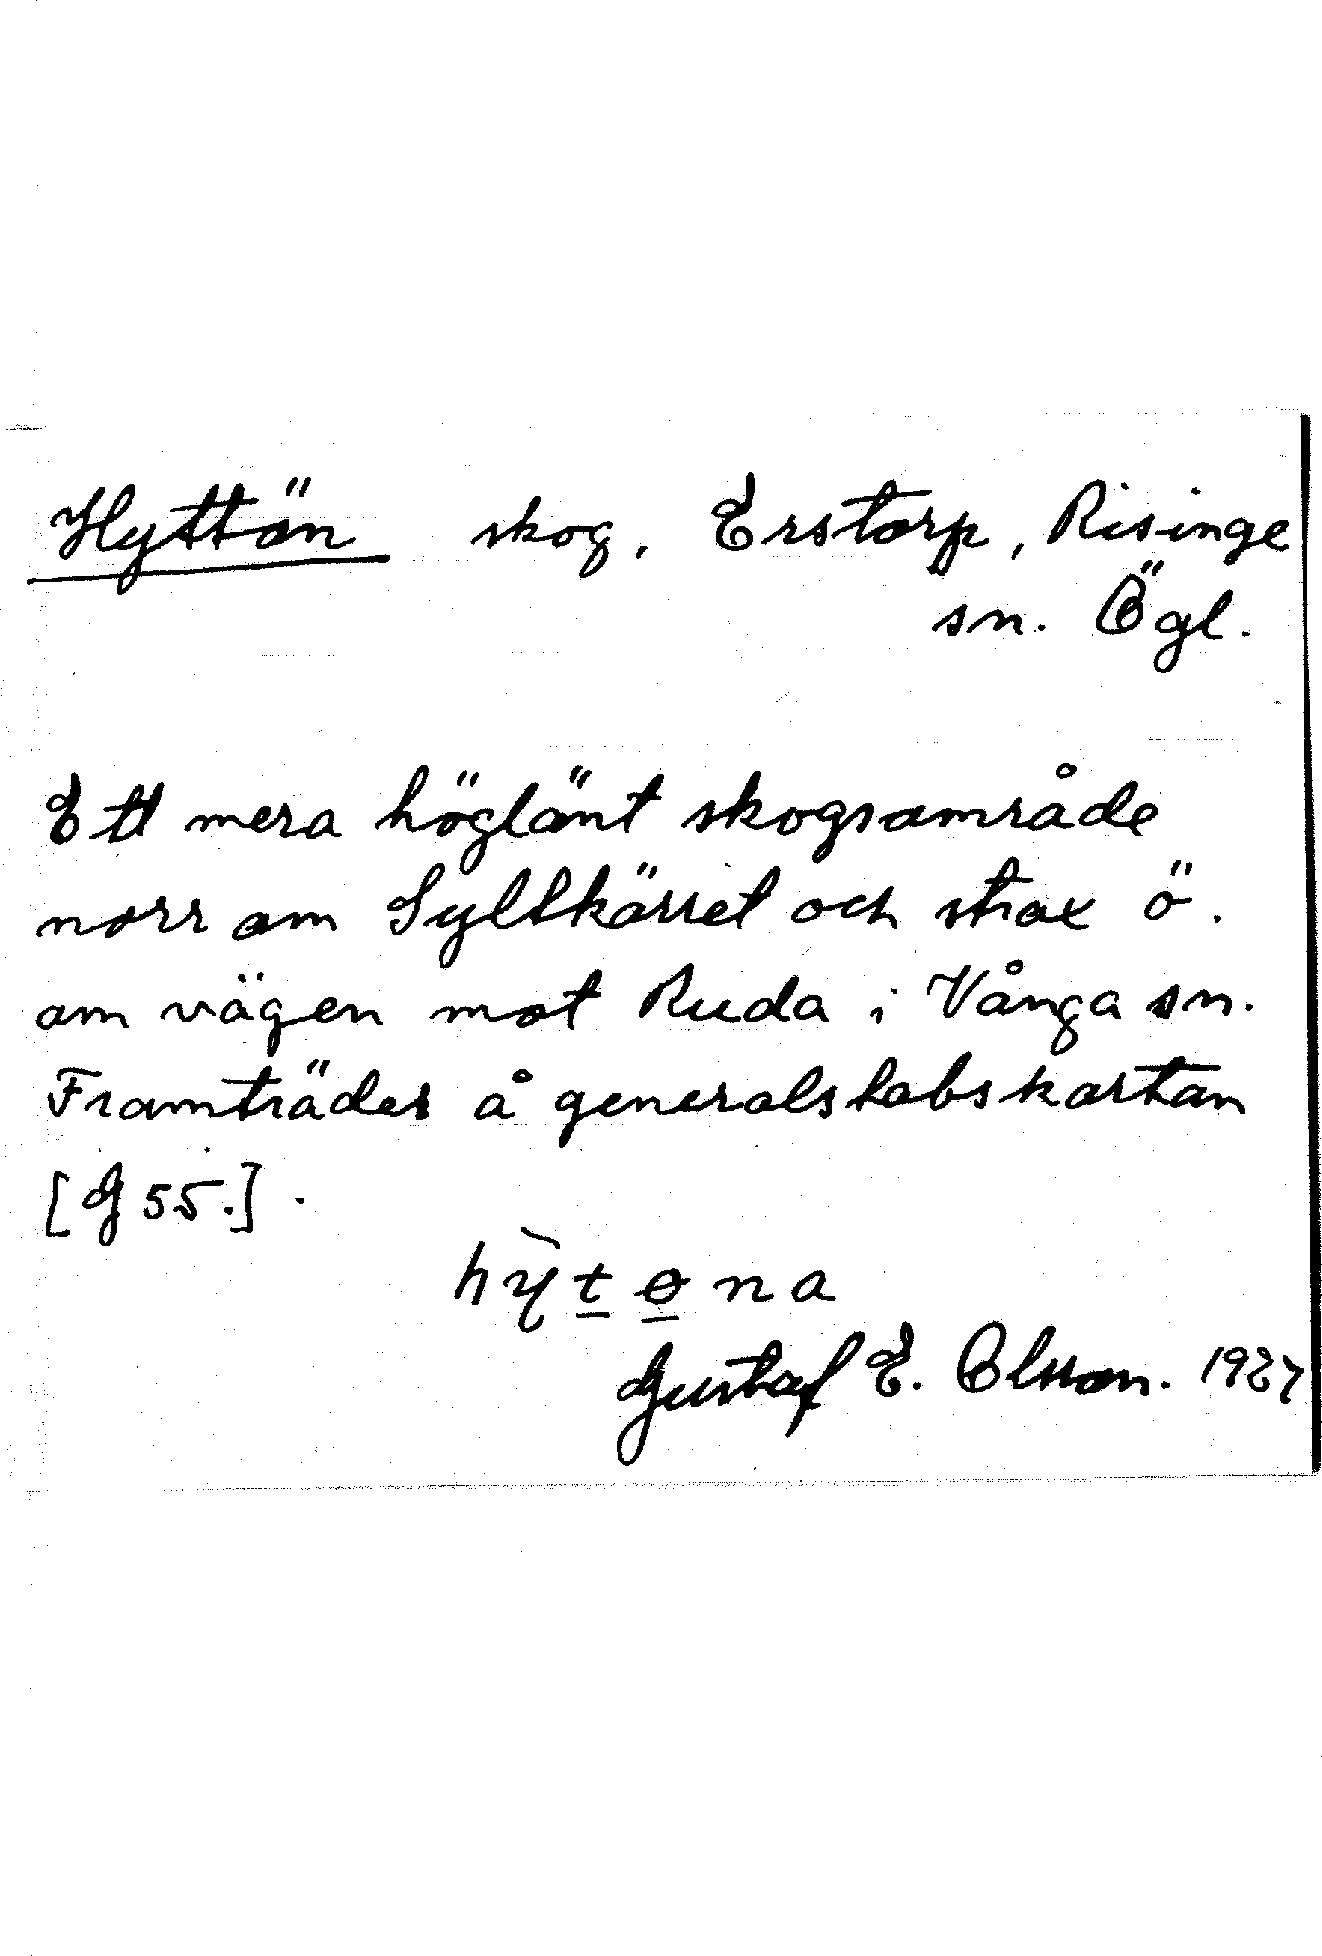 Hyttön skog, Erstorp, Risinge
sn. Ögl.
Ett mera höglänt skogsområde
norr om Syltkärret och strax ö.
om vägen mot Ruda i Vånga sn.
Framträder å generalstabskartan
[G 55.].
hỳt̲ɵ̲na
Gustaf E. Olsson. 1927